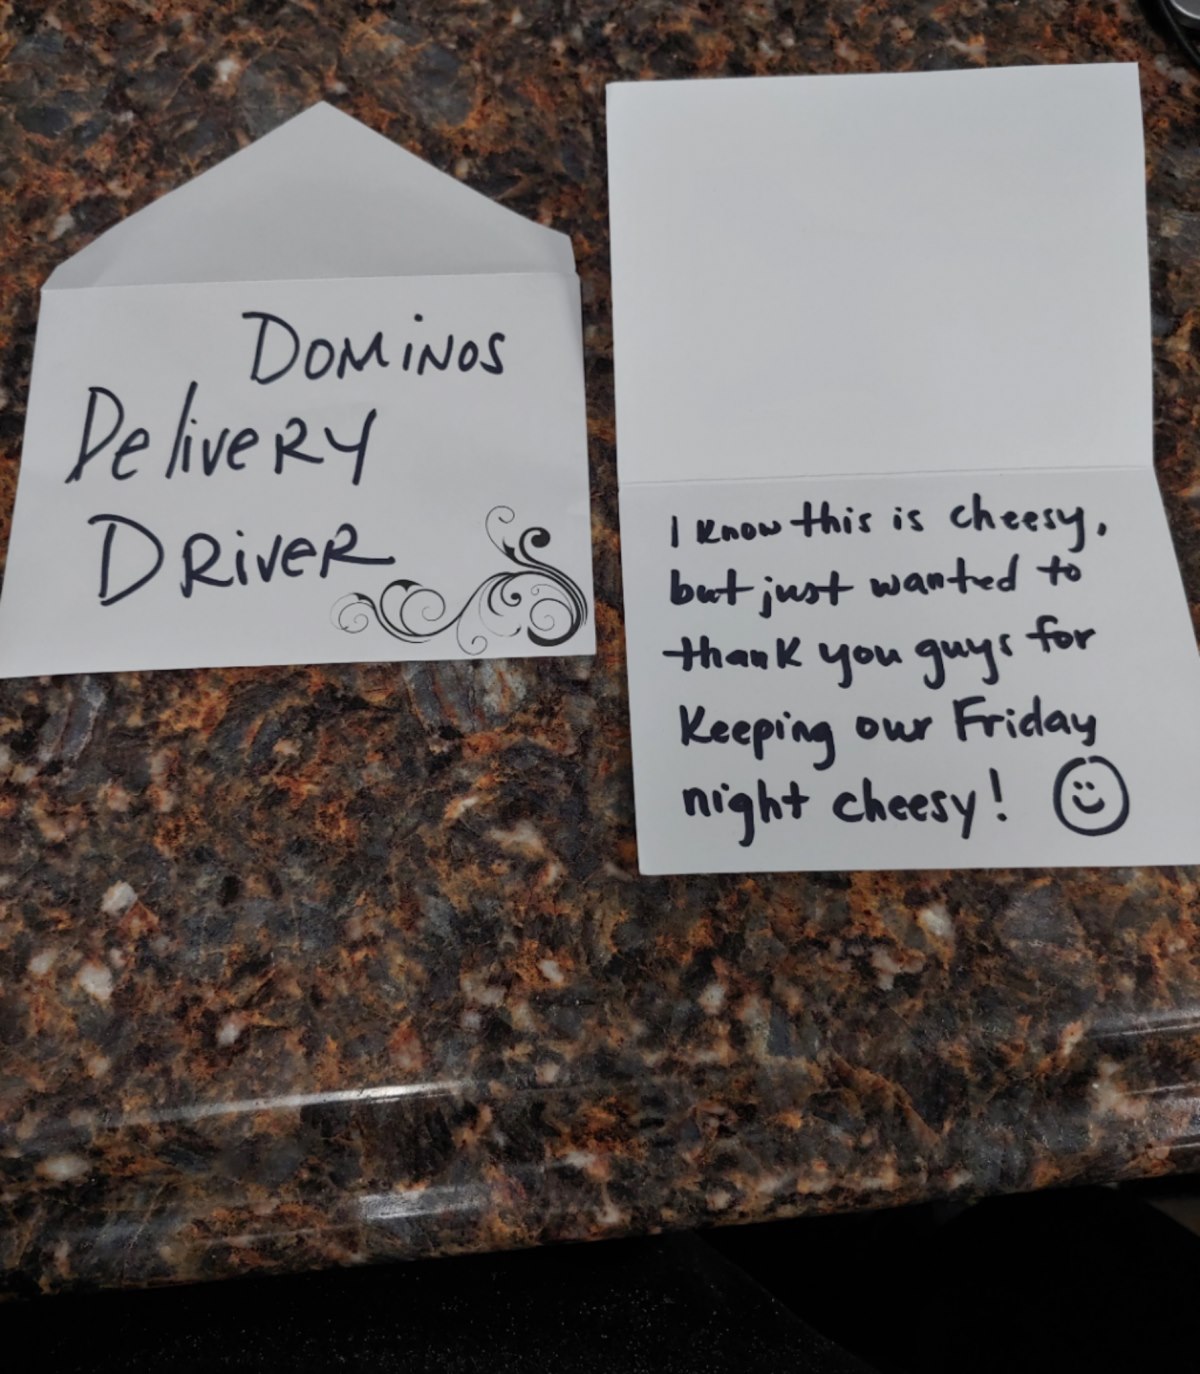 DOMiNOS
DeliveRY
DRiveR
I know this is cheesy,
but just wanted to
thank you guys for
Keeping our Friday
night cheesy!